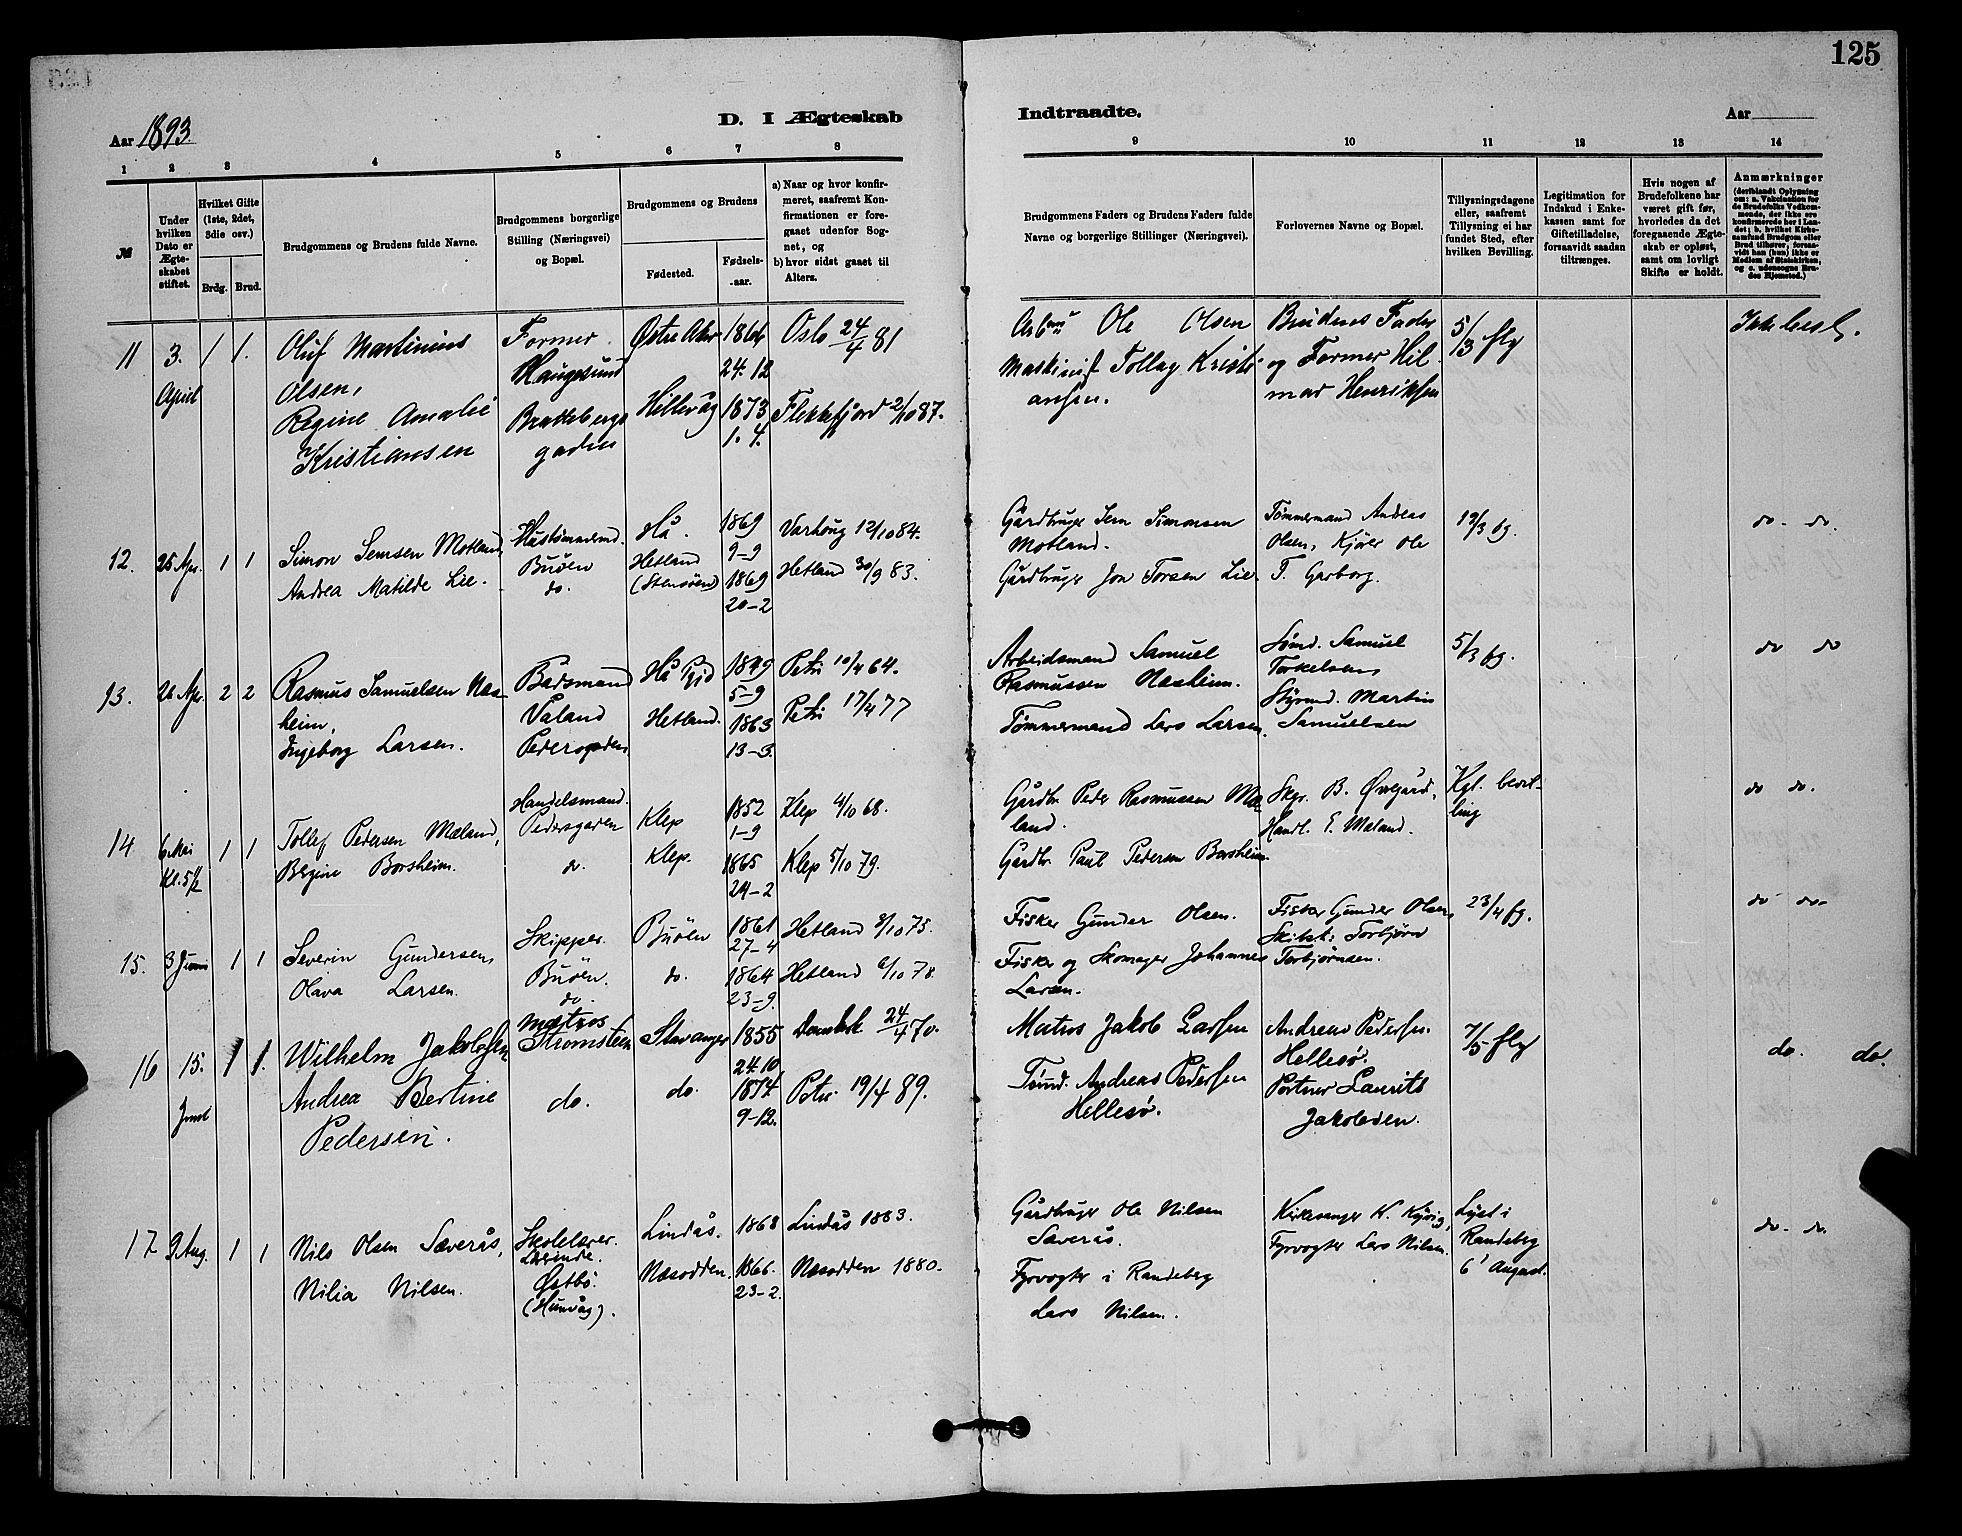 125
Aar 1893.
D. I Ægteskab
Indtraadte.
Aar
1 2 3 4 5 6 7 8
9 10 11 12 13 14
№
Under hvilken Dato er Ægteskabet stiftet.
Hvilket Gifte (1ste, 2det, 3die osv.)
Brdg. Brud.
Brudgommens og Brudens fulde Navne.
Brudgommens borgerlige Stilling (Næringsvei) og Bopæl.
Brudgommens og Brudens
Fødested.
Fødsels-aar.
a) Naar og hvor konfirmeret, saafremt Konfirmationen er foregaaet udenfor Sognet, og
b) hvor sidst gaaet til Alters.
Brudgommens Faders og Brudens Faders fulde Navne og borgerlige Stillinger (Næringsvei).
Forlovernes Navne og Bopæl.
Tillysningsdagene eller, saafremt Tillysning ei har fundet Sted, efter hvilken Bevilling.
Legitimation for Indskud i Enkekassen samt for Giftetilladelse, forsaavidt saadan tiltrænges.
Hvis nogen af Brudefolkene har været gift før, hvorledes da det foregaaende Ægteskab er opløst, samt om lovligt Skifte er holdt.
Anmærkninger
(deriblandt Oplysning om: a. Vakcination for de Brudefolks Vedkommende, der ikke ere konfirmerede her i Landet; b. hvilket Kirkesamfund Brudgom eller Brud tilhører, forsaavidt han (hun) ikke er Medlem af Statskirken, og c. udensogns Brudes Hjemsted.)
11 3. 1 1. Oluf Martinius Former. Østre Aker 1864 Oslo 24/4 81
April Olsen, Haugesund 24.12
Regine Amalie Bratteberg- Hillevåg 1873 Flekkefjord 2/10 87.
Kristiansen gaden 1.4.
Ole Olsen Brudens Fader 5/3 flg
Maskinist Tollag Kristi- og Former Hil-
ansen. mar Henriksen
12. 25 Apr. 1 1 Simon Semsen Motland, Hustømmermd. Hå. 1869 Varhoug 12/10 84.
Buøen 9-9
Andrea Matilde Lie. do. Hetland (Stensøen) 1869 Hetland 30/9 83.
20-2
Gårdbruger Sem Simonsen Tømmermand Andreas 19/3 fg. do - do.
Motland. Olsen, Kjører Ole
Gårdbruger Jon Torsen Lie. T. Garborg.
13. 26 Apr. 2 2 Rasmus Samuelsen Næs- Bådsmand Hå 1849 Petri 10/4 64.
heim, Våland 5-9
Ingeborg Larsen. Pedersgaden Hetland. 1863 Petri 17/4 77
13-3.
Arbeidsmand Samuel Sømd. Samuel 5/3 fg. do do
Rasmussen Næsheim. Torkelsen,
Tømmermand Lars Larsen. Styrmd. Martin
Samuelsen
14 6 Mai 1 1 Tollef Pedersen Mæland, Handelsmand. Klep 1852 Klep 4/10 68.
Kl. 5 1/2 Pedersgaden 1-9
Bergine Borsheim. do. Klep. 1865 Klep 5/10 79.
24-2
Gårdbr. Peder Rasmussen Mæ- Skpr. B. Øvregård, Kgl. bevil- do do.
land. Handl. E. Mæland. ling
Gårdbr. Paul Pedersen Borsheim.
15. 3 Juni 1 1 Severin Gundersen, Skipper. Buøen 1861 Hetland 3/10 75.
Buøen. 27-4
Olava Larsen. do. do. 1864 Hetland 6/10 78.
23-9.
Fisker Gunder Olsen. Fisker Gunder Olsen, 23/4 fg. do do-
Fisker og Skomager Johannes Skibst. Torbjørn
Larsen. Torbjørnsen.
16 15. 1 1. Wilhelm Jakobsen Matros Stavanger 1855 Domkirk 24/4 70.
Strømsteen 24.10
Juni Andrea Bertine do. do. 1874 Petri 19/4 89.
Pedersen. 9-12.
Matros Jakob Larsen Andreas Pedersen 7/5 flg do. do.
Tømd. Andreas Pedersen Hellesø.
Hellesø. Portner Laurits
Jakobsen.
17 9 Aug. 1 1 Nils Olsen Sæverås, Skolelærer. Lindås. 1868 Lindås 1883.
Østbø.
Nilia Nilsen. (Hunvåg). Næsodden. 1866. Næsodden 1880.
23-2.
Gårdbruger Ole Nilsen Kirkesanger K. Kyvig, Lyst i do - do.
Sæverås. Fyrvogter Lars Nilsen. Randeberg
Fyrvogter i Randeberg 6' August.
Lars Nilsen.